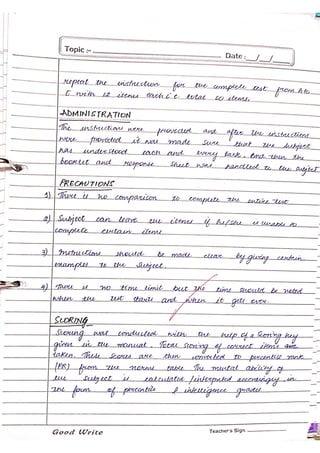 Topic :-
Date: __/__/__
repeat the instruction for the complete test from A to
E with 12 items each i.e total 60 items.
ADMINISTRATION
The instructions were provided and after the instructions
were provided it was made sure that the subject
has understood each and every task. And then the
booklet and response sheet was handled to the subject
PRECAUTIONS
1) There is no comparison to complete the entire test
2) Subject can leave the items if he/she is unable to
complete certain items
3) Instructions should be made clear by giving certain
examples to the subject.
4) There is no time limit but the time should be noted
when the test starts and when it gets over.
SCORING
Scoring was conducted with the help of a scoring key
given in the manual. Total scoring of correct items are
taken. These scores are then converted to percentile rank
(PR) from the norms table The mental ability of
the subject is calculated/interpreted accordingly in
the form of percentile & intelligence grades.
Good Write
Teacher's Sign